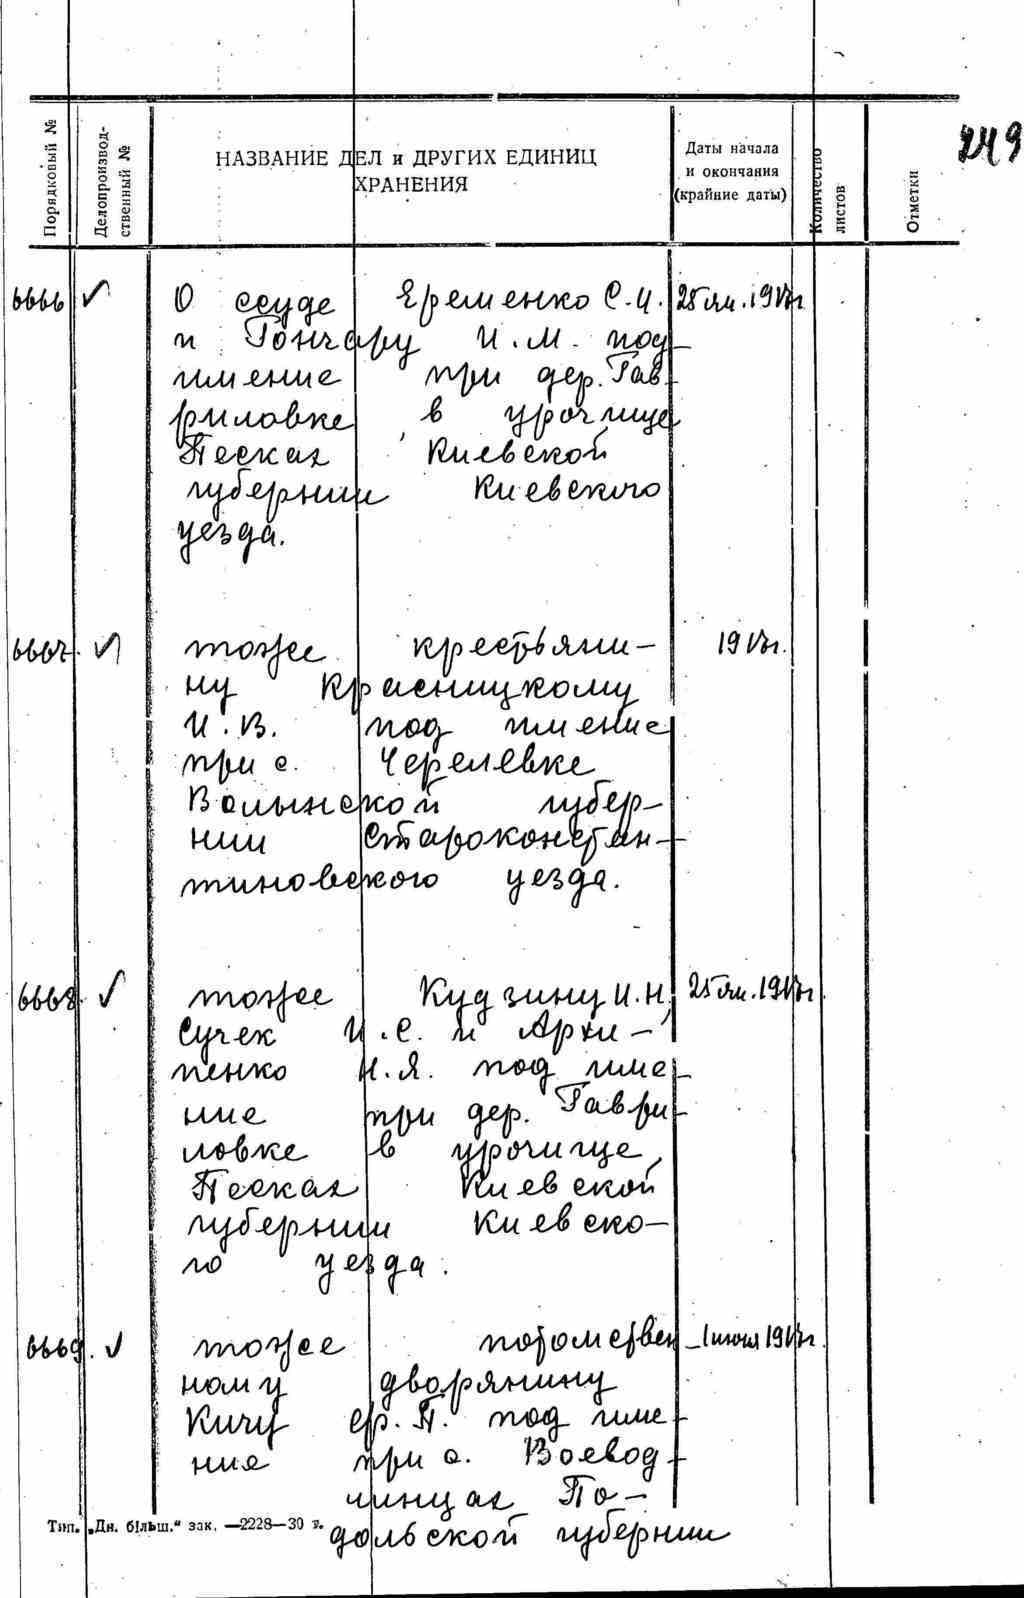 249
Порядковый №
Делопроизвод-
ственный №
НАЗВАНИЕ ДЕЛ и ДРУГИХ ЕДИНИЦ
ХРАНЕНИЯ
Даты начала
и окончания
(крайние даты)
Количество
листов
Отметки
6666 ✓ О ссуде Еременко С.И. 25 ян. 1917г.
и Гончару И.М. под
имение при дер. Гав-
риловке в урочище
Песках Киевской
губернии Киевского
уезда.
6667. ✓ тоже крестьяни- 1917г.
ну Красницкому
И.В. под имение
при с. Черелевке
Волынской губер-
нии Староконстан-
тиновского уезда.
6668. ✓ тоже Кудзину И.Н., 25 ян. 1917г.
Сучек И.С. и Архи-
пенко Н.Я. под име-
ние при дер. Гаври-
ловке в урочище
Песках Киевской
губернии Киевско-
го уезда.
6669. ✓ тоже потомствен- 1917г.
ному дворянину
Кичу Ф.П. под име-
ние при с. Воевод-
чинцах По-
дольской губернии
Тип. „Дн. більш." зак. —2228—30 т.